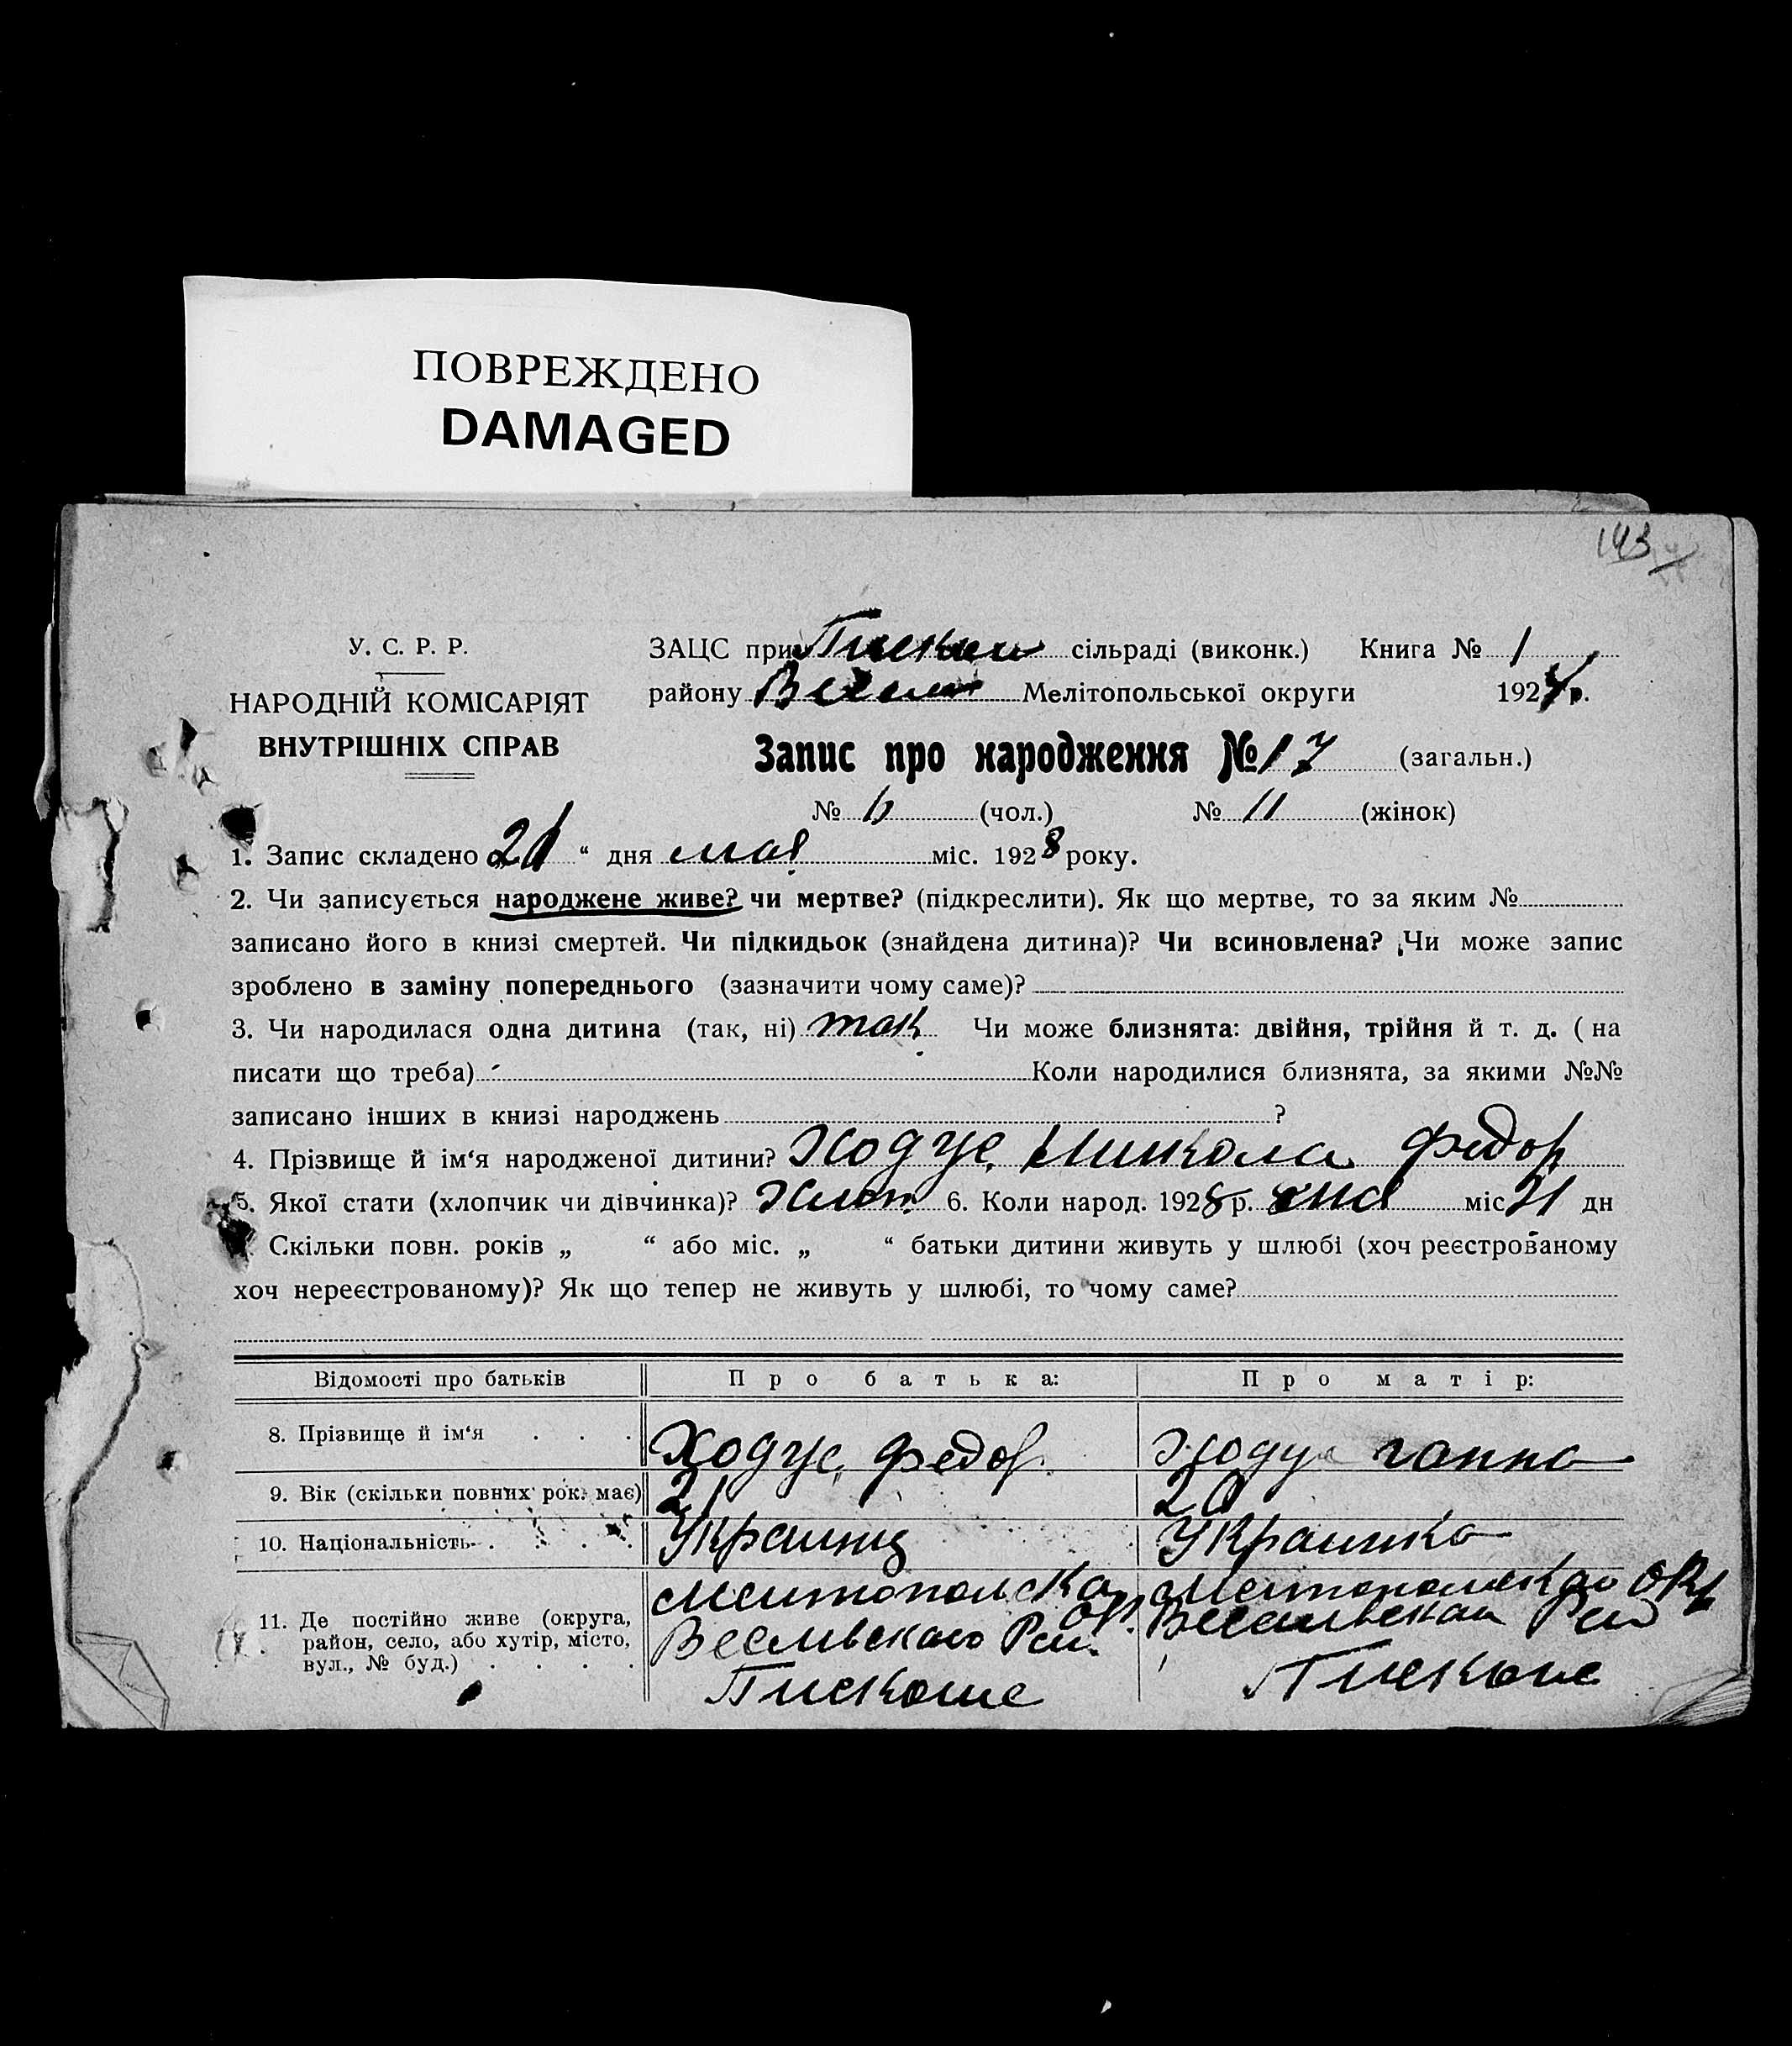 ПОВРЕЖДЕНО
DAMAGED
143
У. С. Р. Р.
НАРОДНІЙ КОМІСАРІЯТ
ВНУТРІШНІХ СПРАВ
ЗАЦС при сільраді (виконк.) Книга № 1
району Мелітопольської округи 192 р.
Запис про народження № 17 (загальн.)
№ (чол.) № 11 (жінок)
1. Запис складено 21 “ дня мая міс. 1928 року.
2. Чи записується народжене живе? чи мертве? (підкреслити). Як що мертве, то за яким №
записано його в книзі смертей. Чи підкидьок (знайдена дитина)? Чи всиновлена? Чи може запис
зроблено в заміну попереднього (зазначити чому саме)?
3. Чи народилася одна дитина (так, ні) так Чи може близнята: двійня, трійня й т. д. ( на
писати що треба) Коли народилися близнята, за якими №№
записано інших в книзі народжень ?
4. Прізвище й ім‘я народженої дитини? Ходус Микола Федор
5. Якої стати (хлопчик чи дівчинка)? Хлоп. 6. Коли народ. 1928 р. міс 21 дн
Скільки повн. років „ “ або міс. „ “ батьки дитини живуть у шлюбі (хоч реєстрованому
хоч нереєстрованому)? Як що тепер не живуть у шлюбі, то чому саме?
Відомості про батьків Про батька: Про матір:
8. Прізвище й ім‘я . . . Ходус Федор Ходус ганна
9. Вік (скільки повних рок. має) 21 20
10. Національність . . . . Украинц Украинка
11. Де постійно живе (округа,
район, село, або хутір, місто,
вул., № буд.) . . . .
Мелитопольска Окр.
Веселивскаго Рай.
Пискоше
Окр
Рай
Пискоше